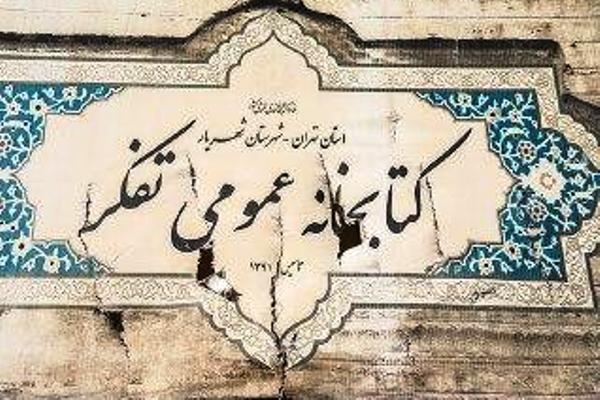 استان تهران - شهرستان شهریار
کتابخانه عمومی تفکر
تأسیس ۱۳۹۱